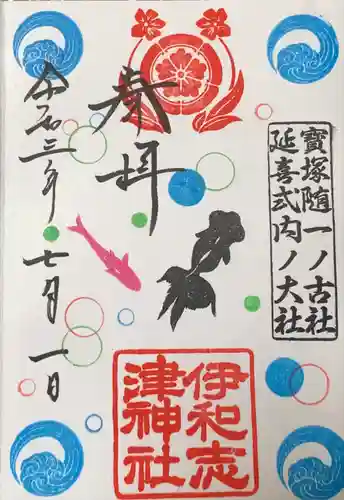 奉拝
寶塚随一ノ古社
延喜式内ノ大社
伊和志
津神社
令和三年七月一日